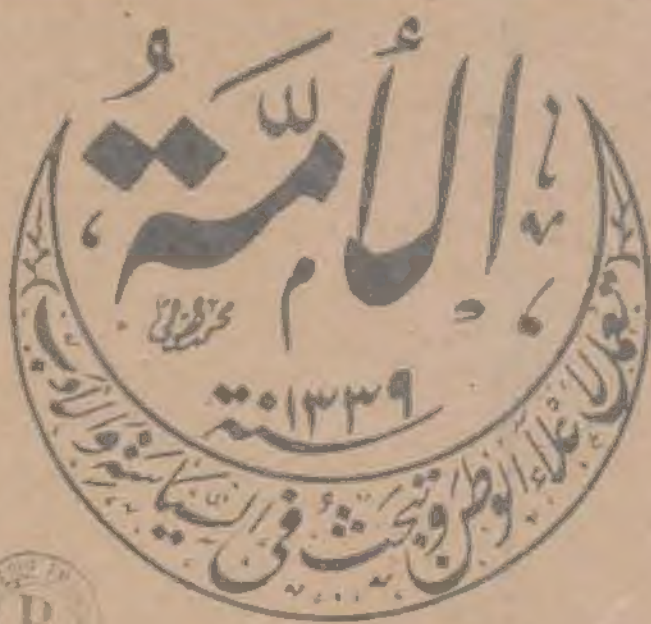 الأمّةُ
سنة ١٣٣٩
تعمل لاعلاء الوطن وتبحث في السياسة والأدب